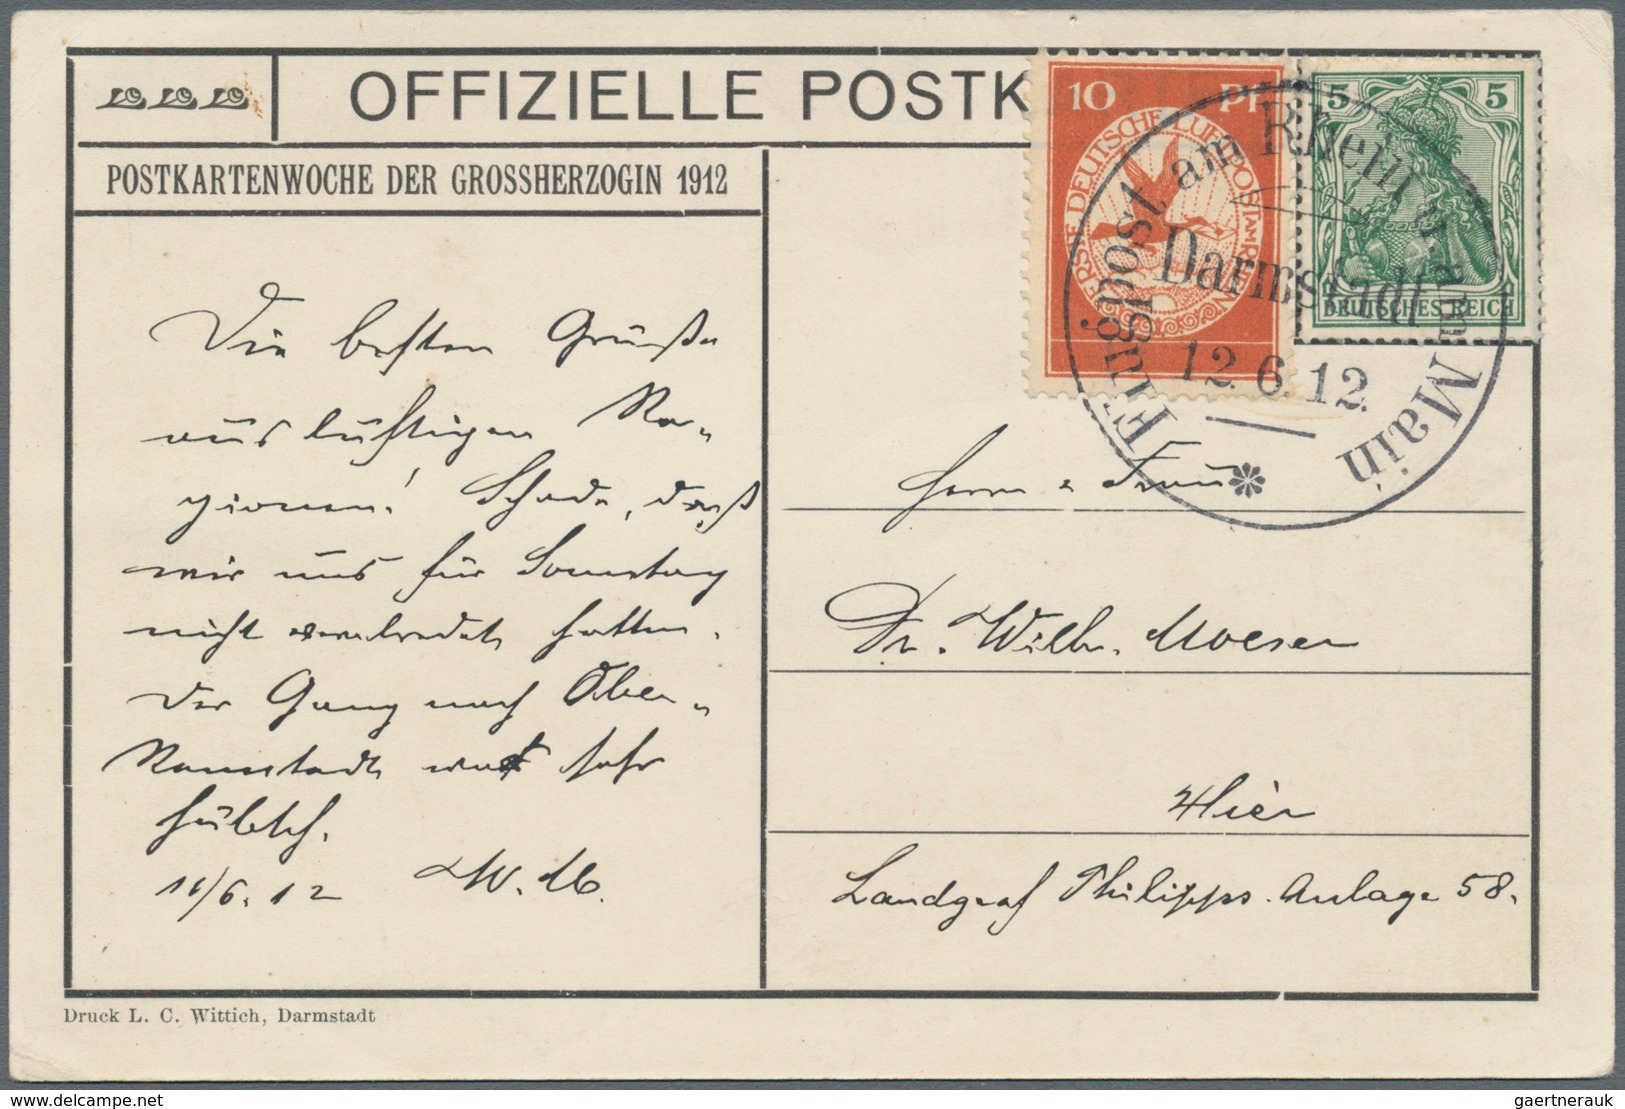 OFFIZIELLE POSTK
POSTKARTENWOCHE DER GROSSHERZOGIN 1912
10 Pf
ERSTE DEUTSCHE LUFTPOST AM RHEIN
5 5
DEUTSCHES REICH
Flugpost am Rhein u. am Main
Darmstadt
12.6.12.
Die besten Grüße
aus luftigen Re-
gionen! Schade, daß
wir uns für Sonntag
nicht verabredet hatten.
Der Gang nach Ober-
Ramstadt war sehr
hübsch.
11/6.12 W. M.
Herrn & Frau
Dr. Wilh. Moeser
Hier
Landgraf Philipps. Anlage 58.
Druck L. C. Wittich, Darmstadt
gaertnerauk